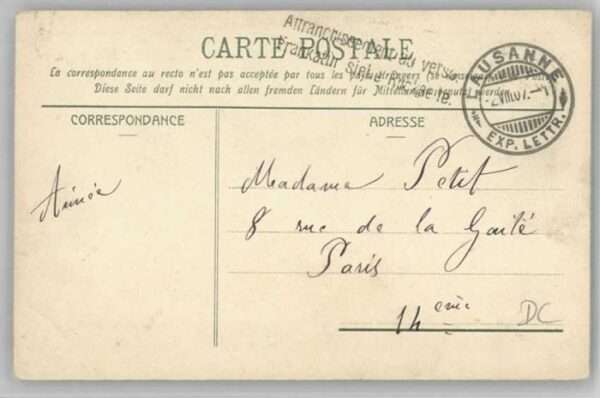 Affranchissement au verso
Frankatur siehe Rückseite.
CARTE POSTALE
La correspondance au recto n'est pas acceptée par tous les pays étrangers (se
Diese Seite darf nicht nach allen fremden Ländern für Mitteilungen benutzt werden
LAUSANNE
2.VIII.07.-7
EXP. LETTR.
CORRESPONDANCE
ADRESSE
Aimée
Madame Petit
8 rue de la Gaité
Paris
14 eme
DC